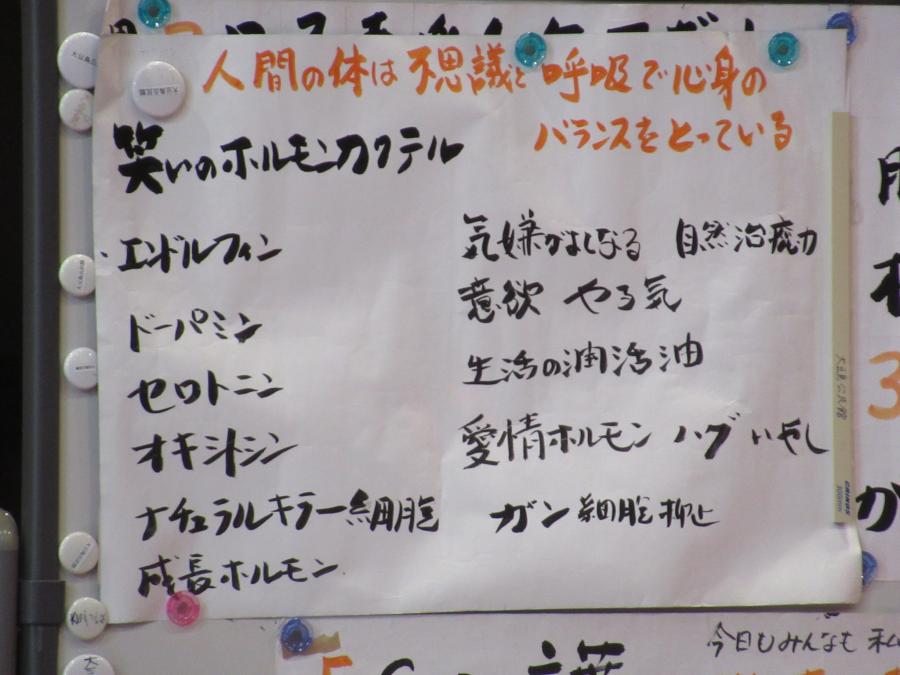 人間の体は不思議と呼吸で心身の
バランスをとっている
笑いのホルモンカクテル
エンドルフィン 気嫌がよくなる 自然治癒力
ドーパミン 意欲 やる気
セロトニン 生活の潤活油
オキシトシン 愛情ホルモン ハグ いやし
ナチュラルキラー細胞 ガン細胞抑止
成長ホルモン
今日もみんなも 私